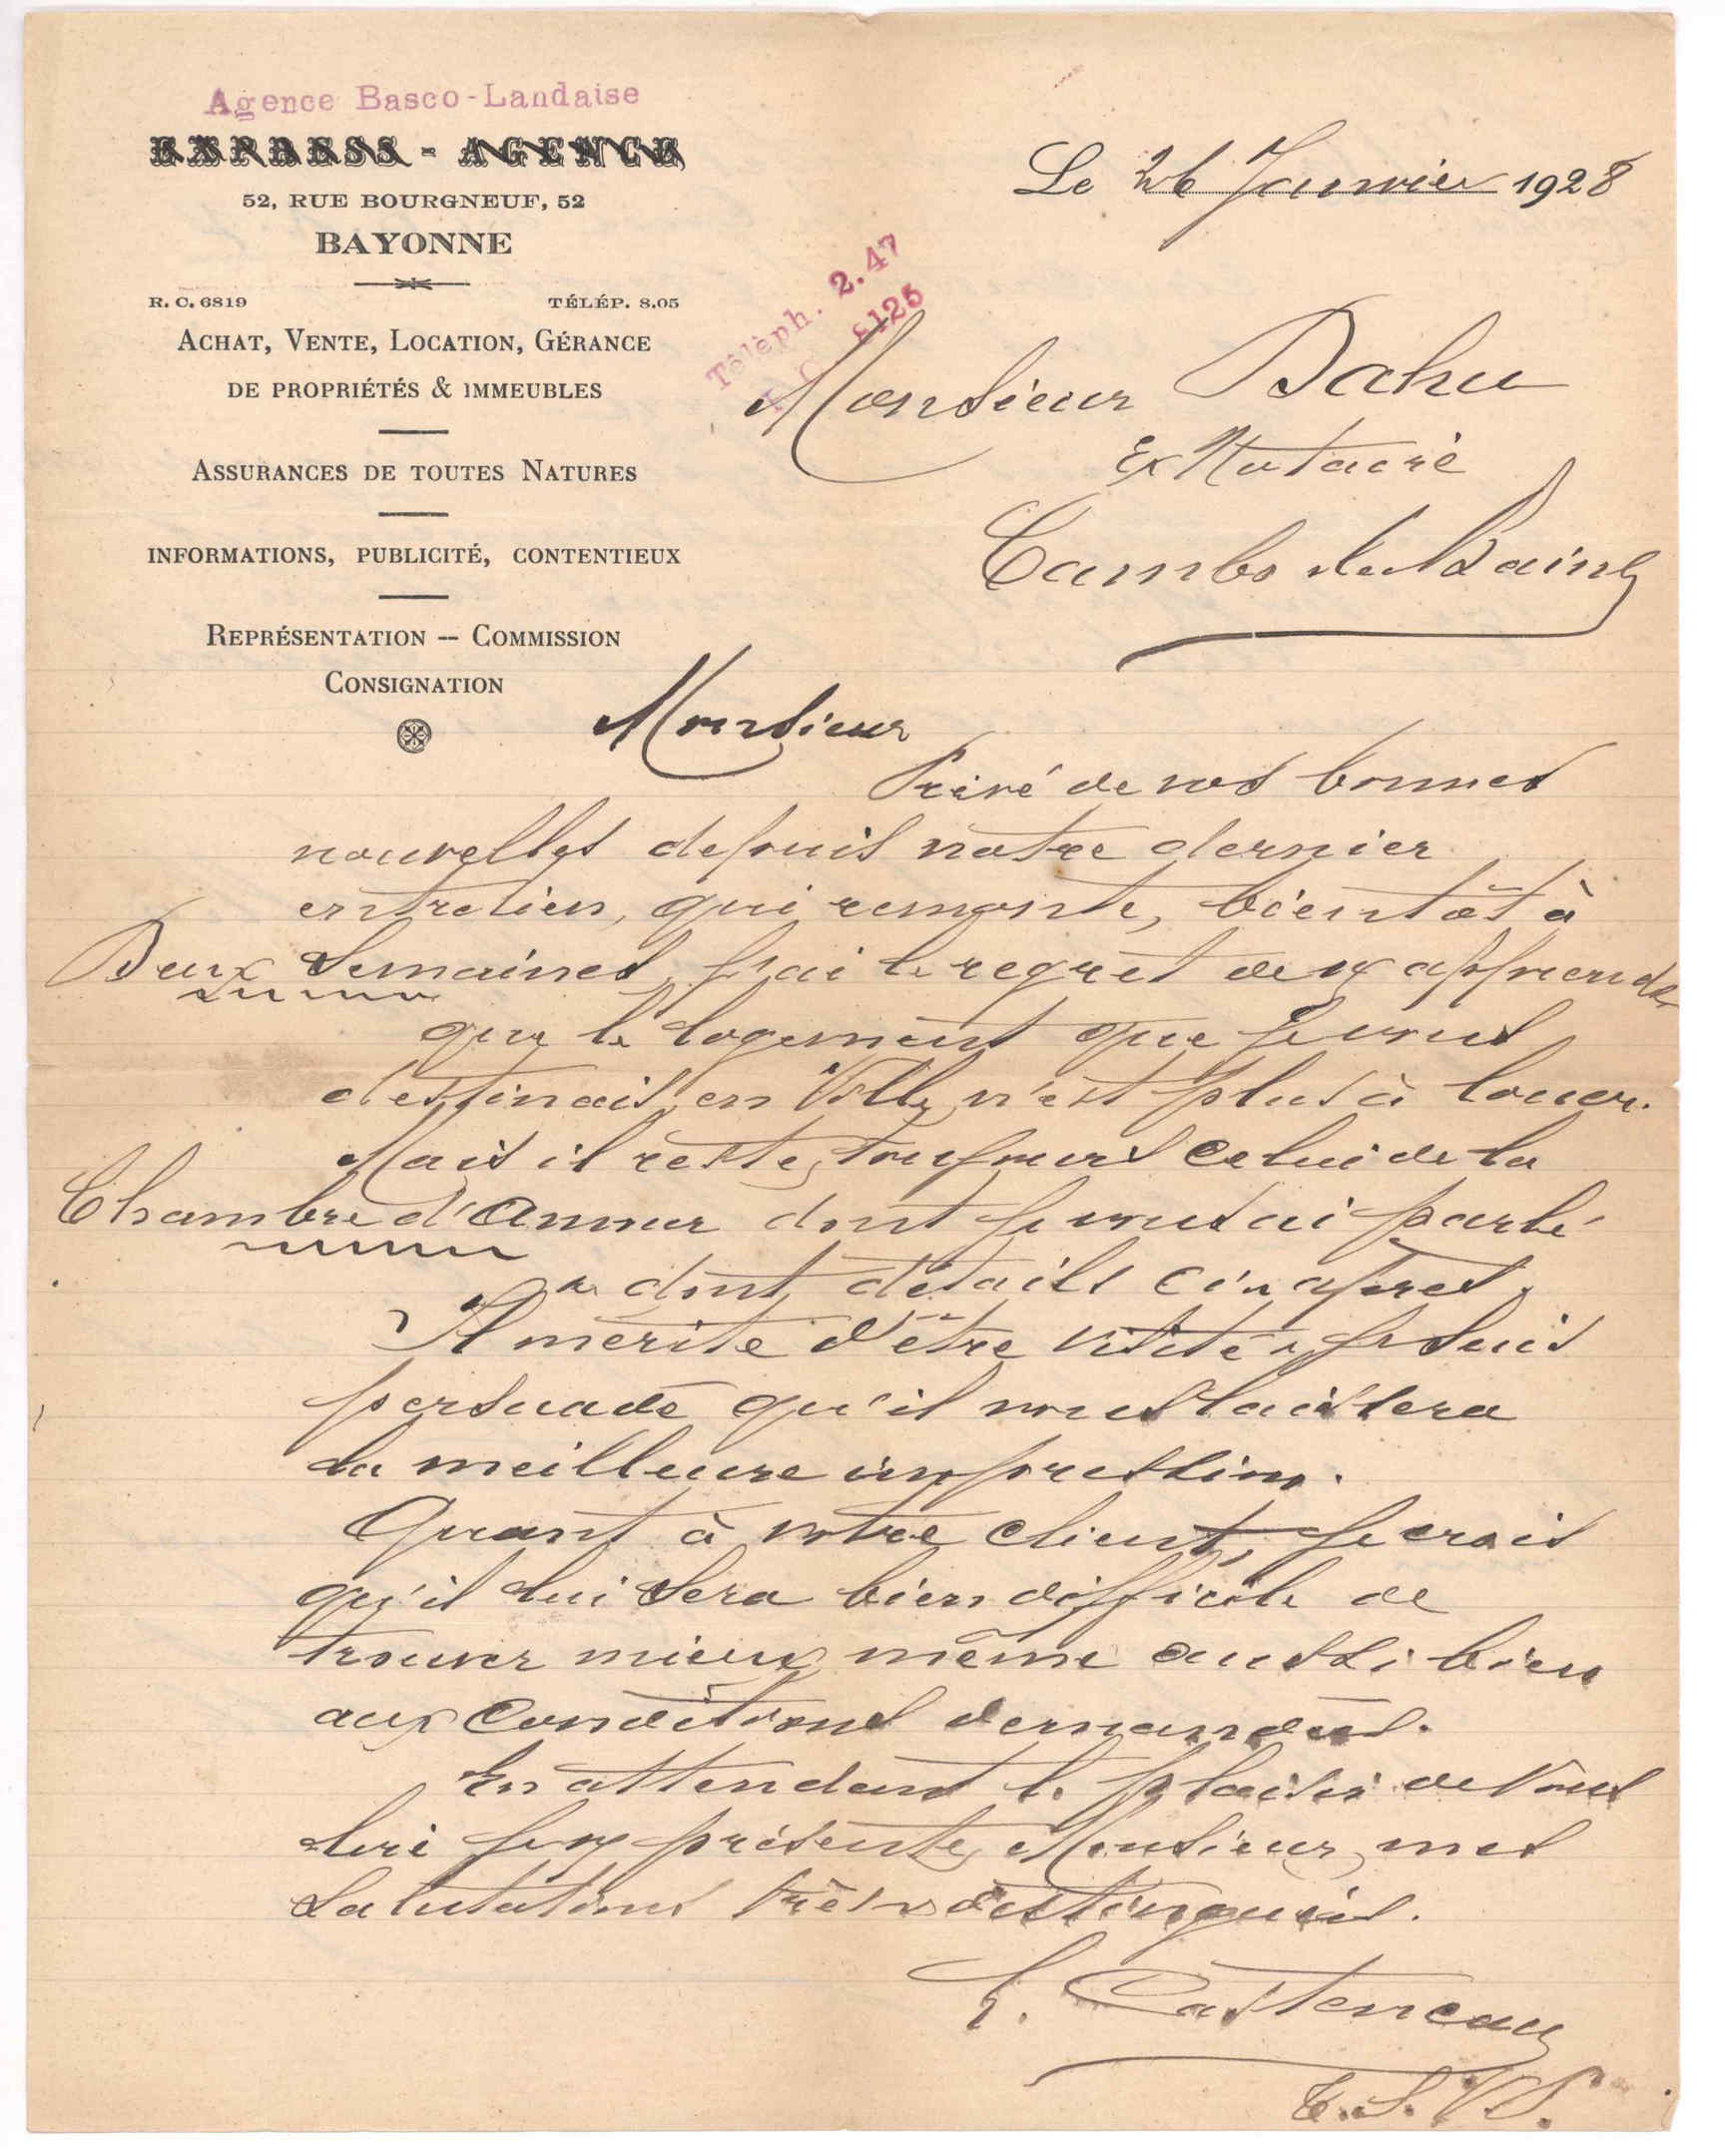 Agence Basco-Landaise
EXPRESS - AGENCE
52, RUE BOURGNEUF, 52
BAYONNE
R. C. 6819 TÉLÉP. 8.05
ACHAT, VENTE, LOCATION, GÉRANCE
DE PROPRIÉTÉS & IMMEUBLES
ASSURANCES DE TOUTES NATURES
INFORMATIONS, PUBLICITÉ, CONTENTIEUX
REPRÉSENTATION — COMMISSION
CONSIGNATION
Le 26 Janvier 1928
Téléph. 2.47
Monsieur Dahu
Ex Notaire
Cambo les Bains
Monsieur
Privé de vos bonnes
nouvelles depuis notre dernier
entretien, qui remonte, bientôt à
Deux Semaines, j'ai le regret de v/ apprendre
que le logement que je vous
destinais en Ville, n'est plus à louer.
Mais il reste, toujours celui de la
Chambre d'Amour dont je vous ai parlé
& dont détails ci-après.
Il mérite d'être visité & je suis
persuadé qu'il vous laissera
la meilleure impression.
Quant à votre client, je crois
qu'il lui sera bien difficile de
trouver mieux, même aussi bien
aux Conditions demandées.
En attendant le plaisir de Vous
lire je v/ présente, Monsieur, mes
Salutations très distinguées.
Casteneau
T.S.V.P.